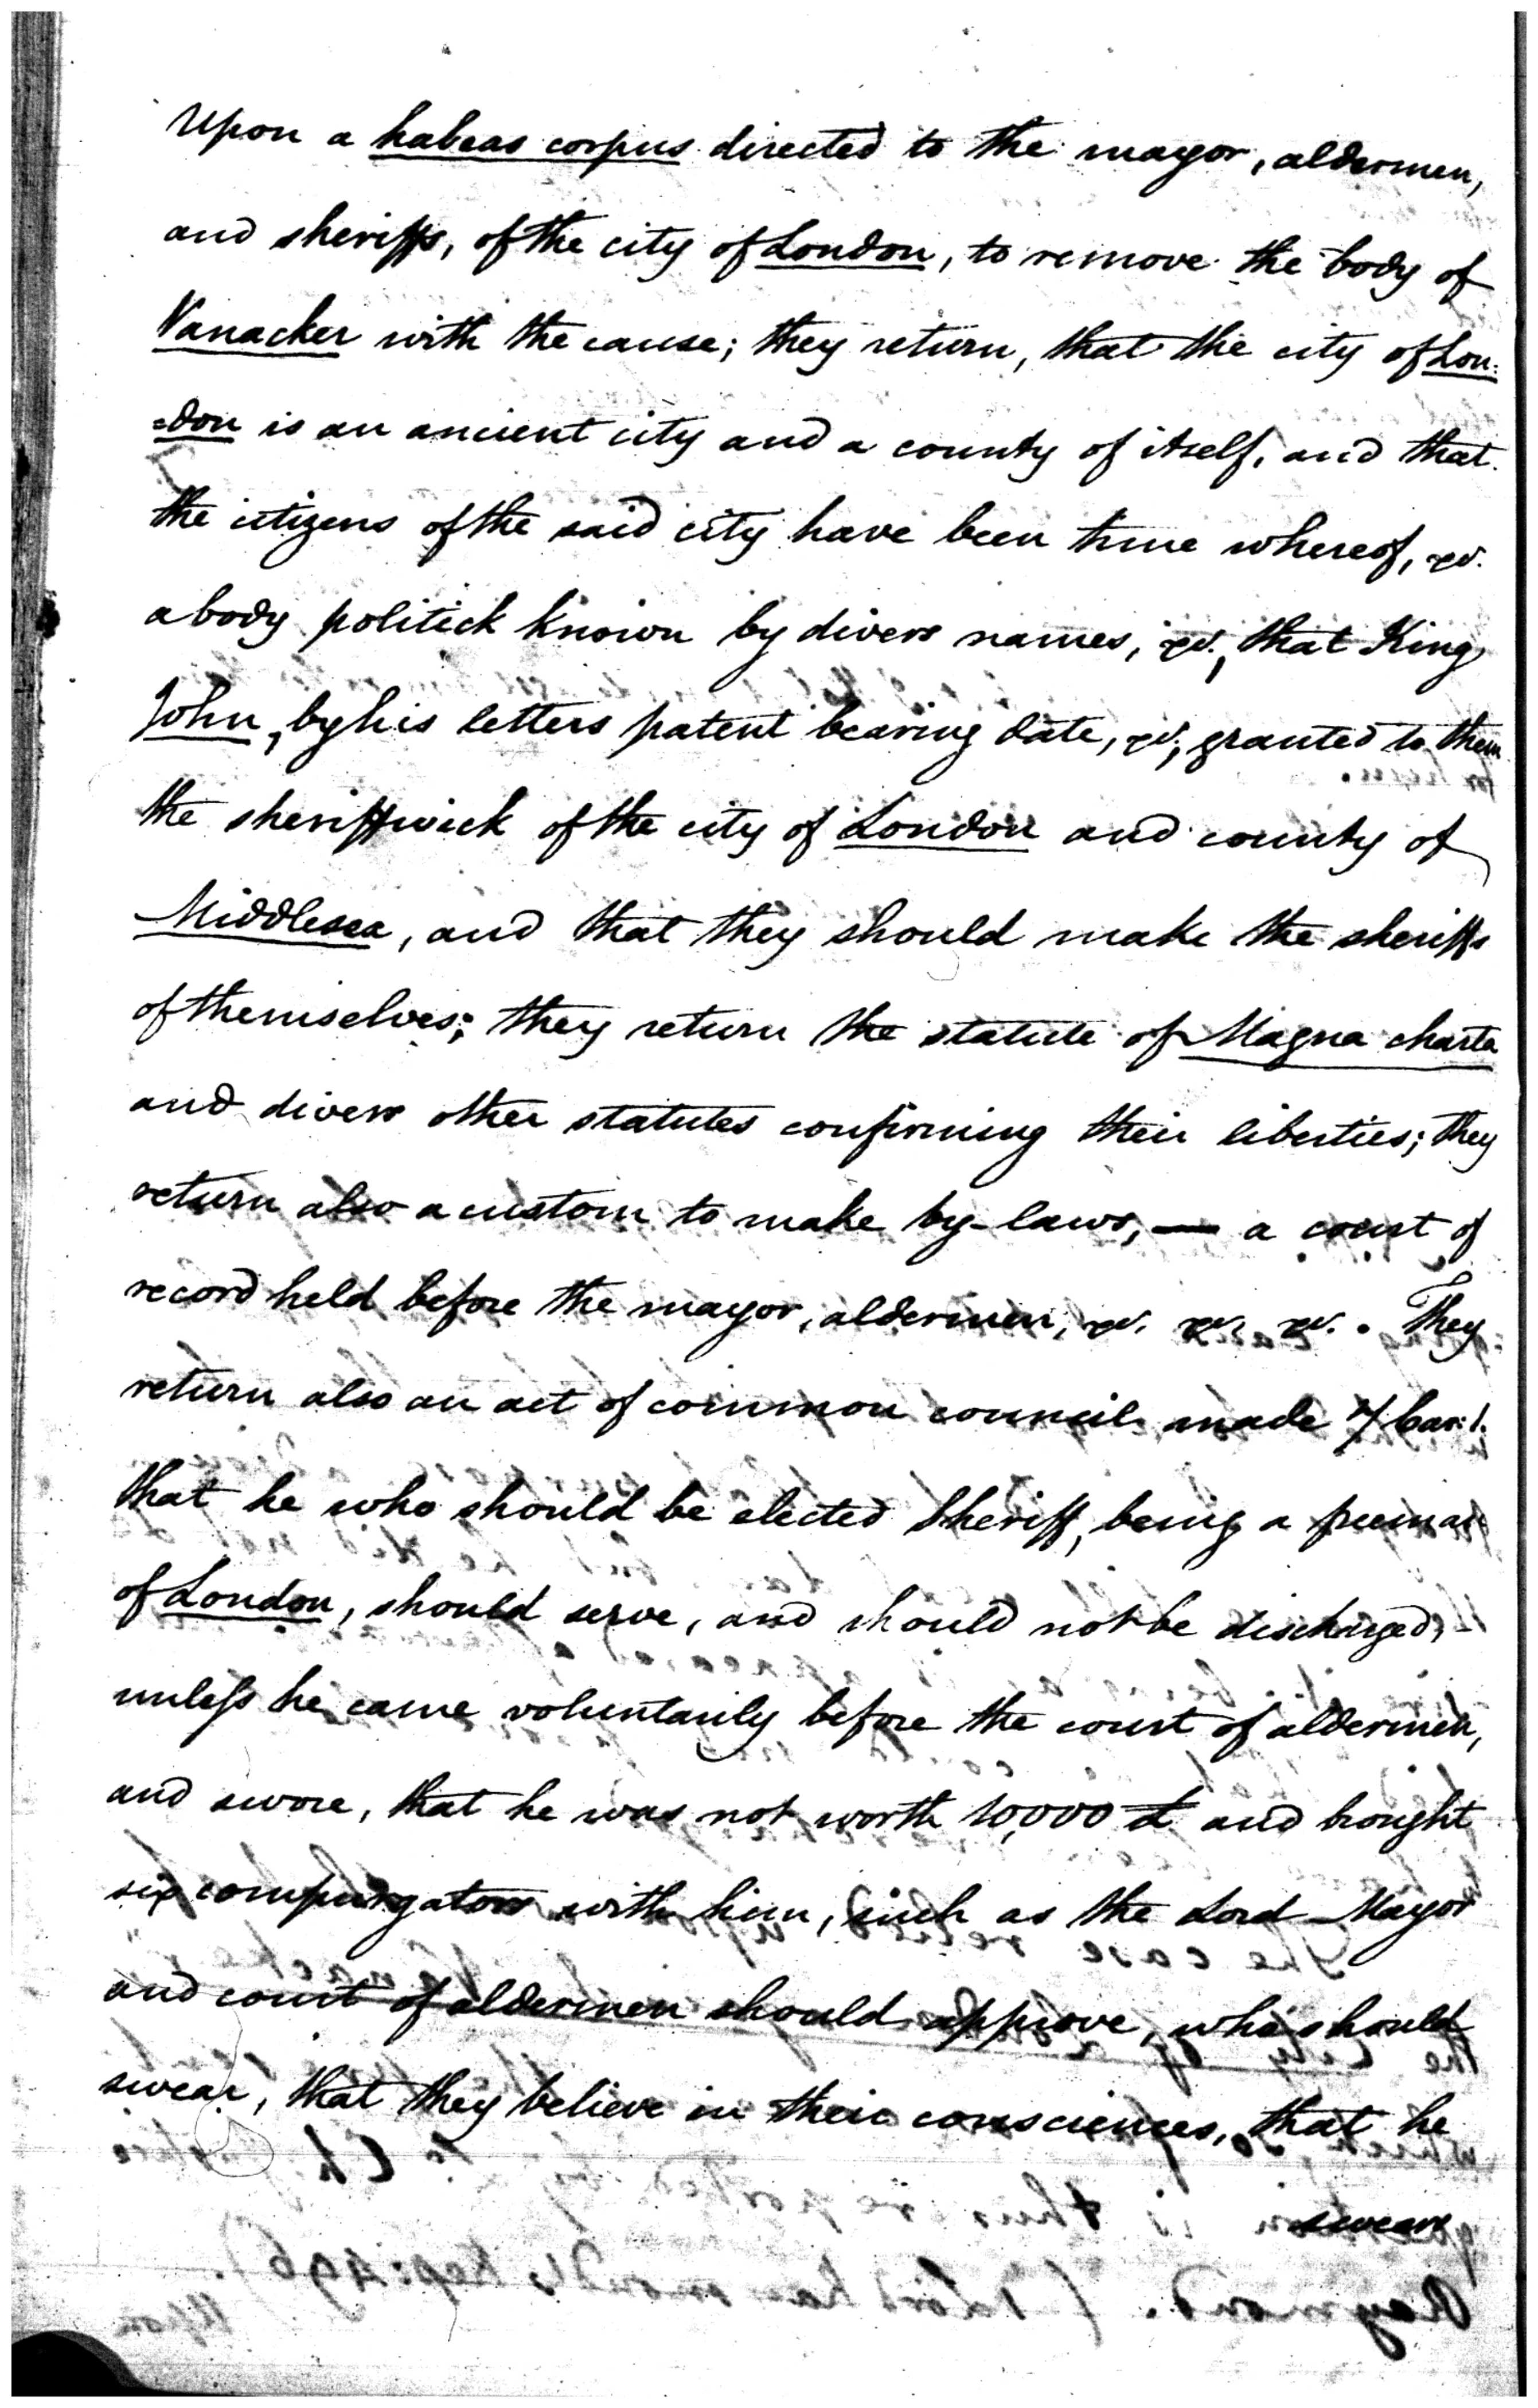 Upon a habeas corpus directed to the mayor, aldermen,
and sheriffs, of the city of London, to remove the body of
Vanacker with the cause; they return, that the city of Lon=
=don is an ancient city and a county of itself, and that
the citizens of the said city have been time whereof, &c.
a body politick known by divers names, &c., that King
John, by his letters patent bearing date, &c., granted to them
the sheriffwick of the city of London and county of
Middlesex, and that they should make the sheriffs
of themselves; they return the statute of Magna charta
and divers other statutes confirming their liberties; they
return also a custom to make by-laws, — a court of
record held before the mayor, aldermen, &c. &c. &c. . They
return also an act of common council made 7 Car: 1.
that he who should be elected Sheriff, being a freeman
of London, should serve, and should not be discharged,
unless he came voluntarily before the court of aldermen,
and swore, that he was not worth 10,000 £ and brought
six compurgators with him, such as the Lord Mayor
and court of aldermen should approve, who should
swear, that they believe in their consciences, that he
swears